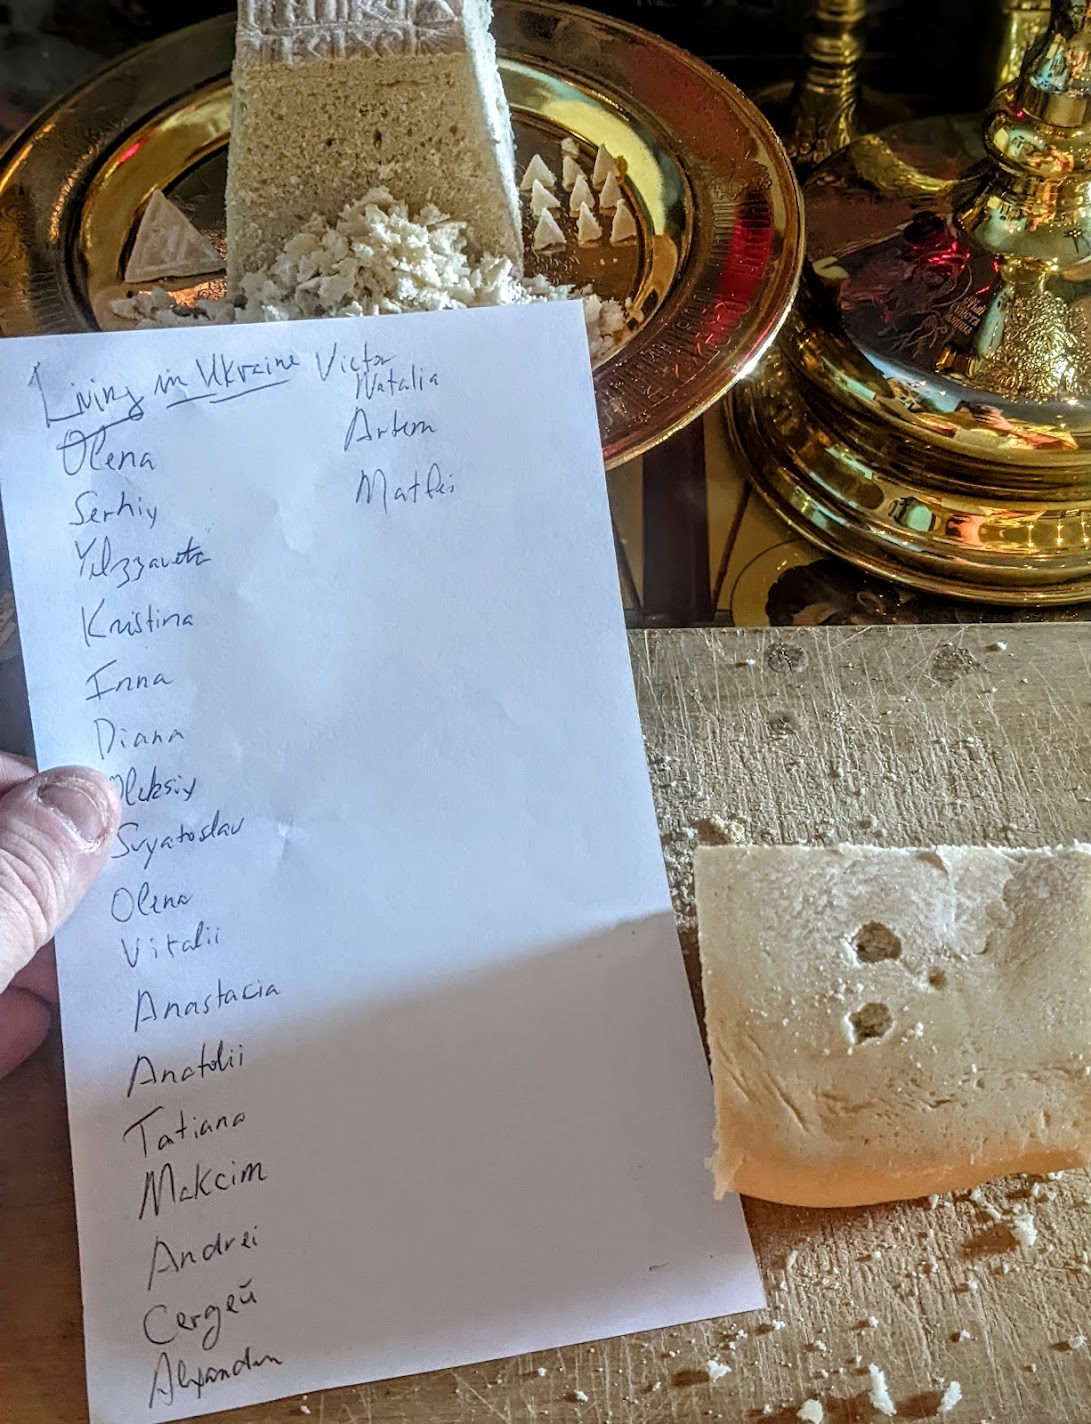 Living in Ukraine Victor
Natalia
Artem
Matfei
Olena
Serhiy
Yelizzaveta
Kristina
Inna
Diana
Oleksiy
Svyatoslav
Olena
Vitalii
Anastacia
Anatolii
Tatiana
Makcim
Andrei
Сергей